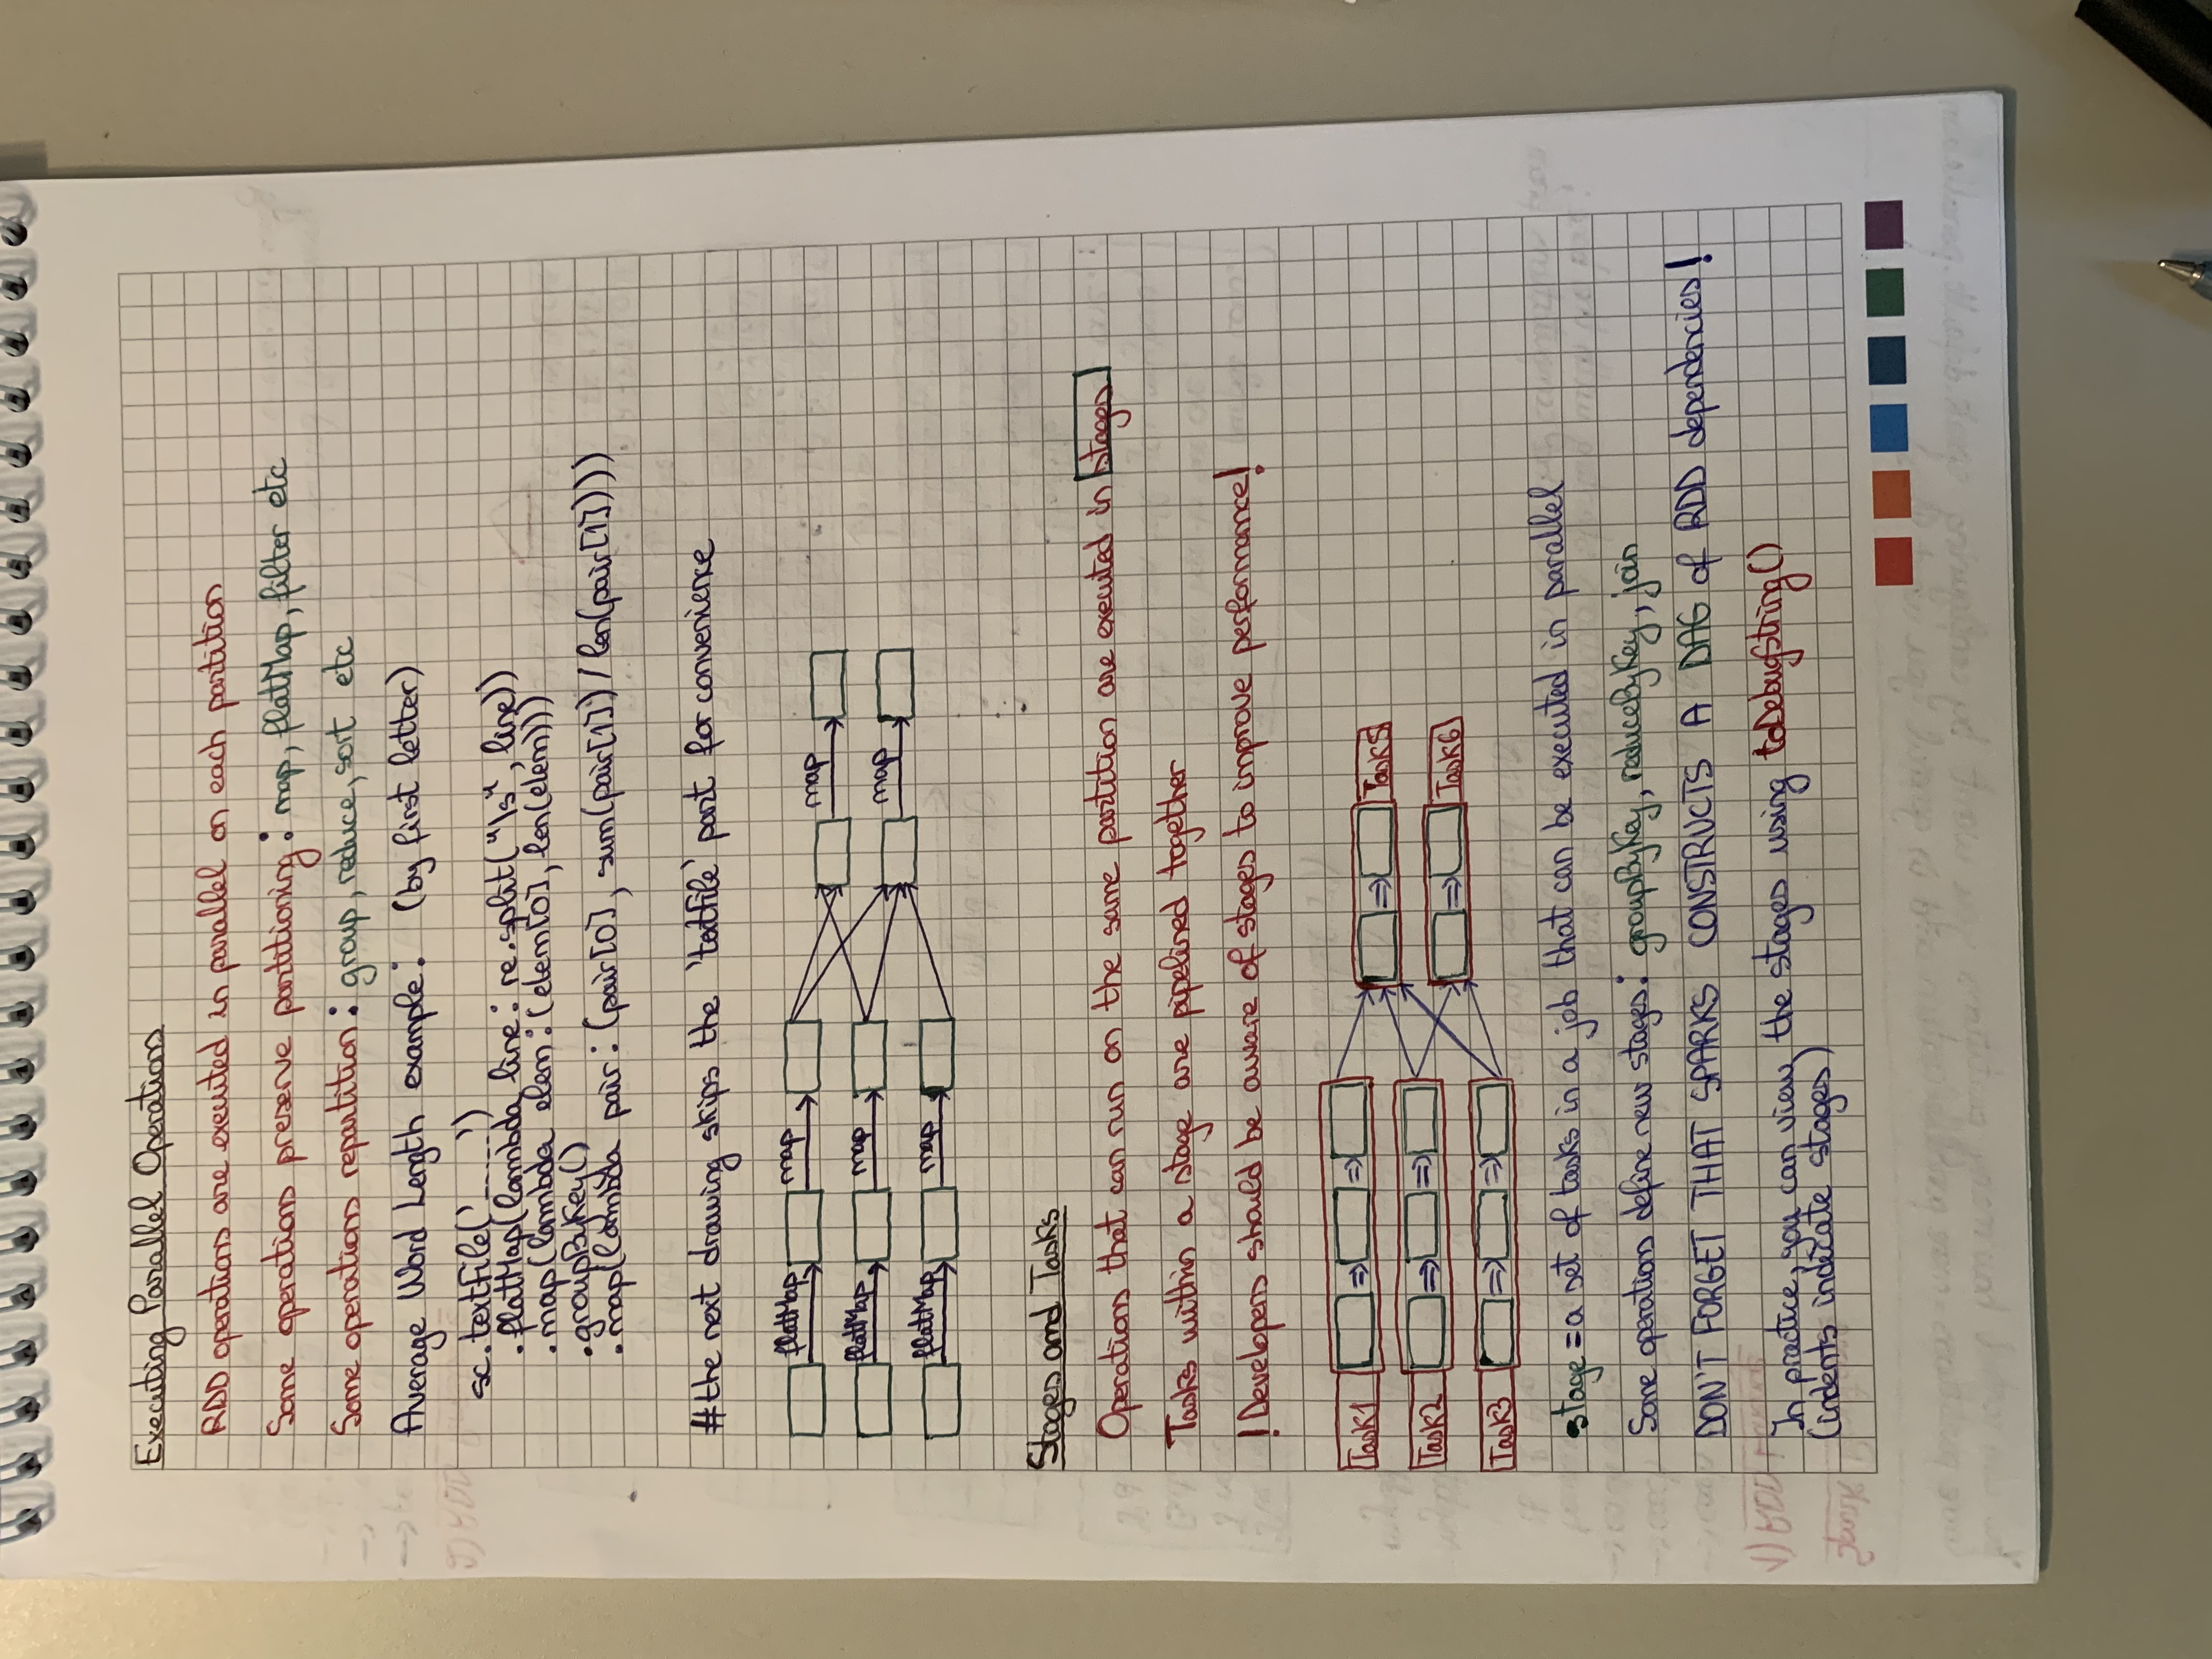 Executing Parallel Operations
RDD operations are executed in parallel on each partition
Some operations preserve partitioning: map, flatMap, filter etc
Some operations repartition: group, reduce, sort etc
Average Word Length example: (by first letter)
sc.textfile('_ _ _ _')
.flatMap(lambda line: re.split("\s", line))
.map(lambda elem: (elem[0], len(elem)))
.groupByKey()
.map(lambda pair: (pair[0], sum(pair[1]) / len(pair[1])))
#the next drawing skips the 'textfile' part for convenience
flatMap map map
flatMap map map
flatMap map
Stages and Tasks
Operations that can run on the same partition are executed in stages
Tasks within a stage are pipelined together
!Developers should be aware of stages to improve performance!
Task1 Task5
Task2 Task6
Task3
stage = a set of tasks in a job that can be executed in parallel
Some operations define new stages: groupByKey, reduceByKey, join
DON'T FORGET THAT SPARKS CONSTRUCTS A DAG of RDD dependencies!
In practice, you can view the stages using toDebugString()
(indents indicate stages)